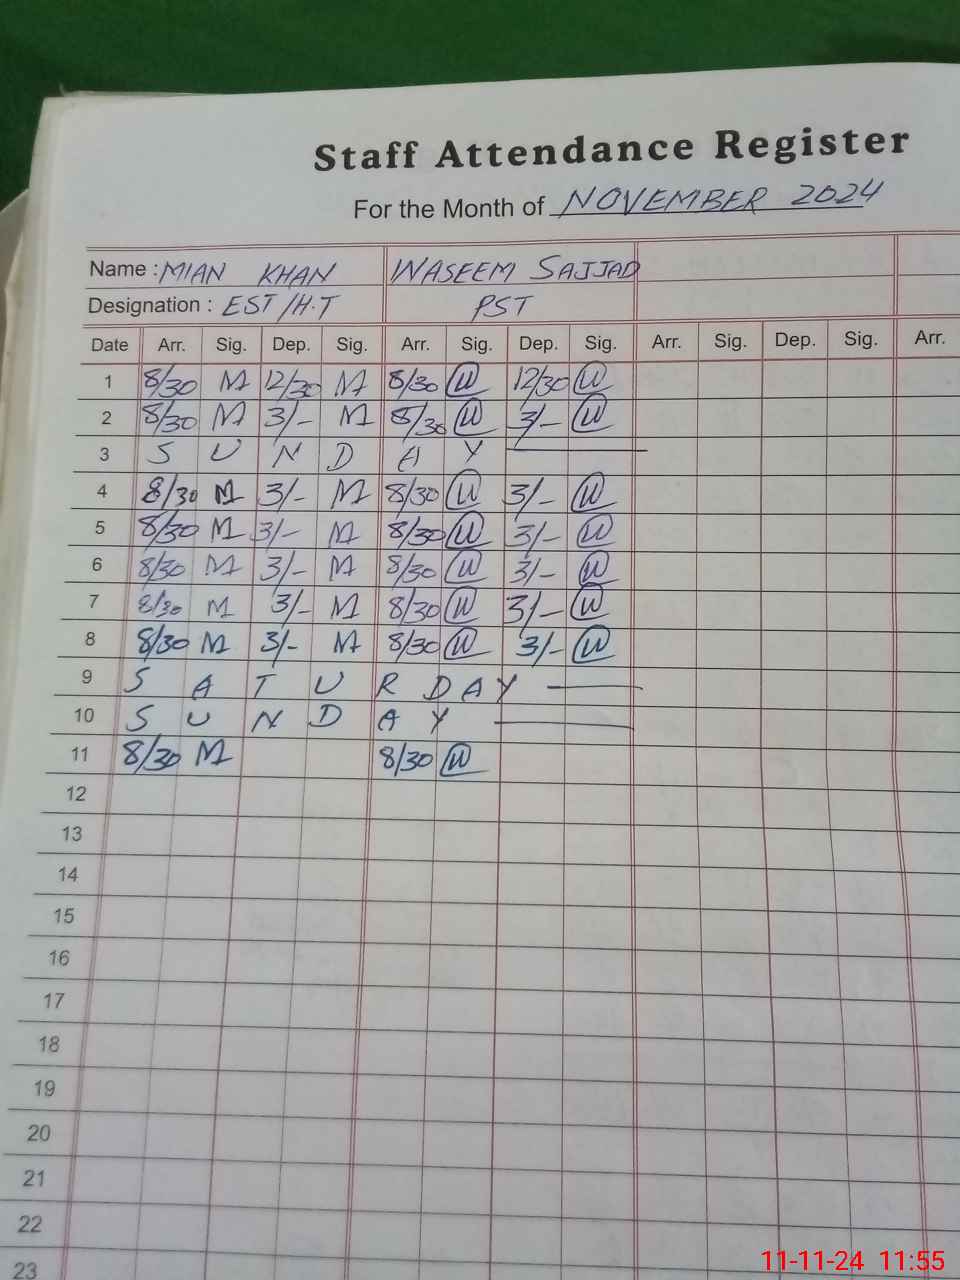 Staff Attendance Register
For the Month of NOVEMBER 2024
Name : MIAN KHAN WASEEM SAJJAD
Designation : EST/H.T PST
Date Arr. Sig. Dep. Sig. Arr. Sig. Dep. Sig. Arr. Sig. Dep. Sig. Arr.
1 8/30 M 12/30 M 8/30 W 12/30 W
2 8/30 M 3/- M 8/30 W 3/- W
3 SUNDAY
4 8/30 M 3/- M 8/30 W 3/- W
5 8/30 M 3/- M 8/30 W 3/- W
6 8/30 M 3/- M 8/30 W 3/- W
7 8/30 M 3/- M 8/30 W 3/- W
8 8/30 M 3/- M 8/30 W 3/- W
9 SATURDAY
10 SUNDAY
11 8/30 M 8/30 W
12
13
14
15
16
17
18
19
20
21
22
23
11-11-24 11:55